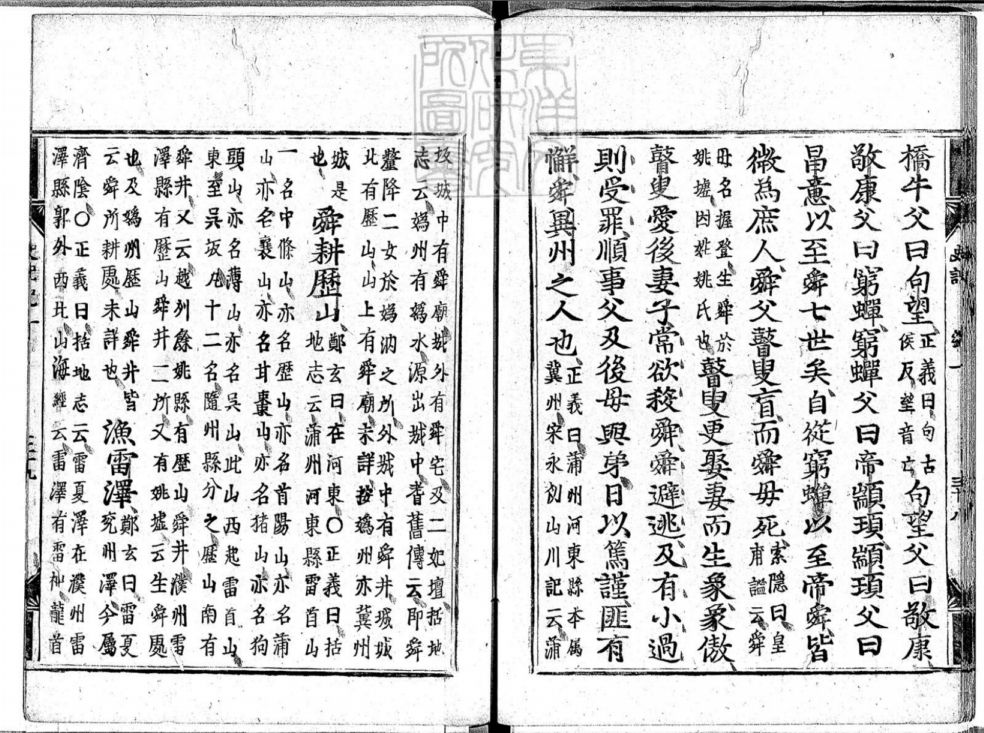 橋牛父曰句望正義曰句古侯反望音亡句望父曰敬康
敬康父曰窮蟬窮蟬父曰帝顓頊顓頊父曰
昌意以至舜七世矣自從窮蟬以至帝舜皆
微為庶人舜父瞽叟盲而舜母死索隱曰皇甫謐云舜
母名握登生舜於姚墟因姓姚氏也瞽叟更娶妻而生象象傲
瞽叟愛後妻子常欲殺舜舜避逃及有小過
則受罪順事父及後母與弟日以篤謹匪有
懈舜冀州之人也正義曰蒲州河東縣本属冀州宋永初山川記云蒲
坂城中有舜廟城外有舜宅及二妃壇括地
志云媯州有媯水源出城中耆舊傳云即舜
釐降二女於媯汭之所外城中有舜井城城
北有歷山山上有舜廟未詳按媯州亦冀州
城是也舜耕歷山鄭玄曰在河東〇正義曰括地志云蒲州河東縣雷首山
一名中條山亦名歷山亦名首陽山亦名蒲
山亦名襄山亦名甘棗山亦名猪山亦名狗
頭山亦名薄山亦名吳山此山西起雷首山
東至吳坂凡十二名隨州縣分之歷山南有
舜井又云越州餘姚縣有歷山舜井濮州雷
澤縣有歷山舜井二所又有姚墟云生舜處
也及媯州歷山舜井皆云舜所耕處未詳也漁雷澤鄭玄曰雷夏兖州澤今屬
濟陰〇正義曰括地志云雷夏澤在濮州雷
澤縣郭外西北山海經云雷澤有雷神龍首
史記
三十八
三十九